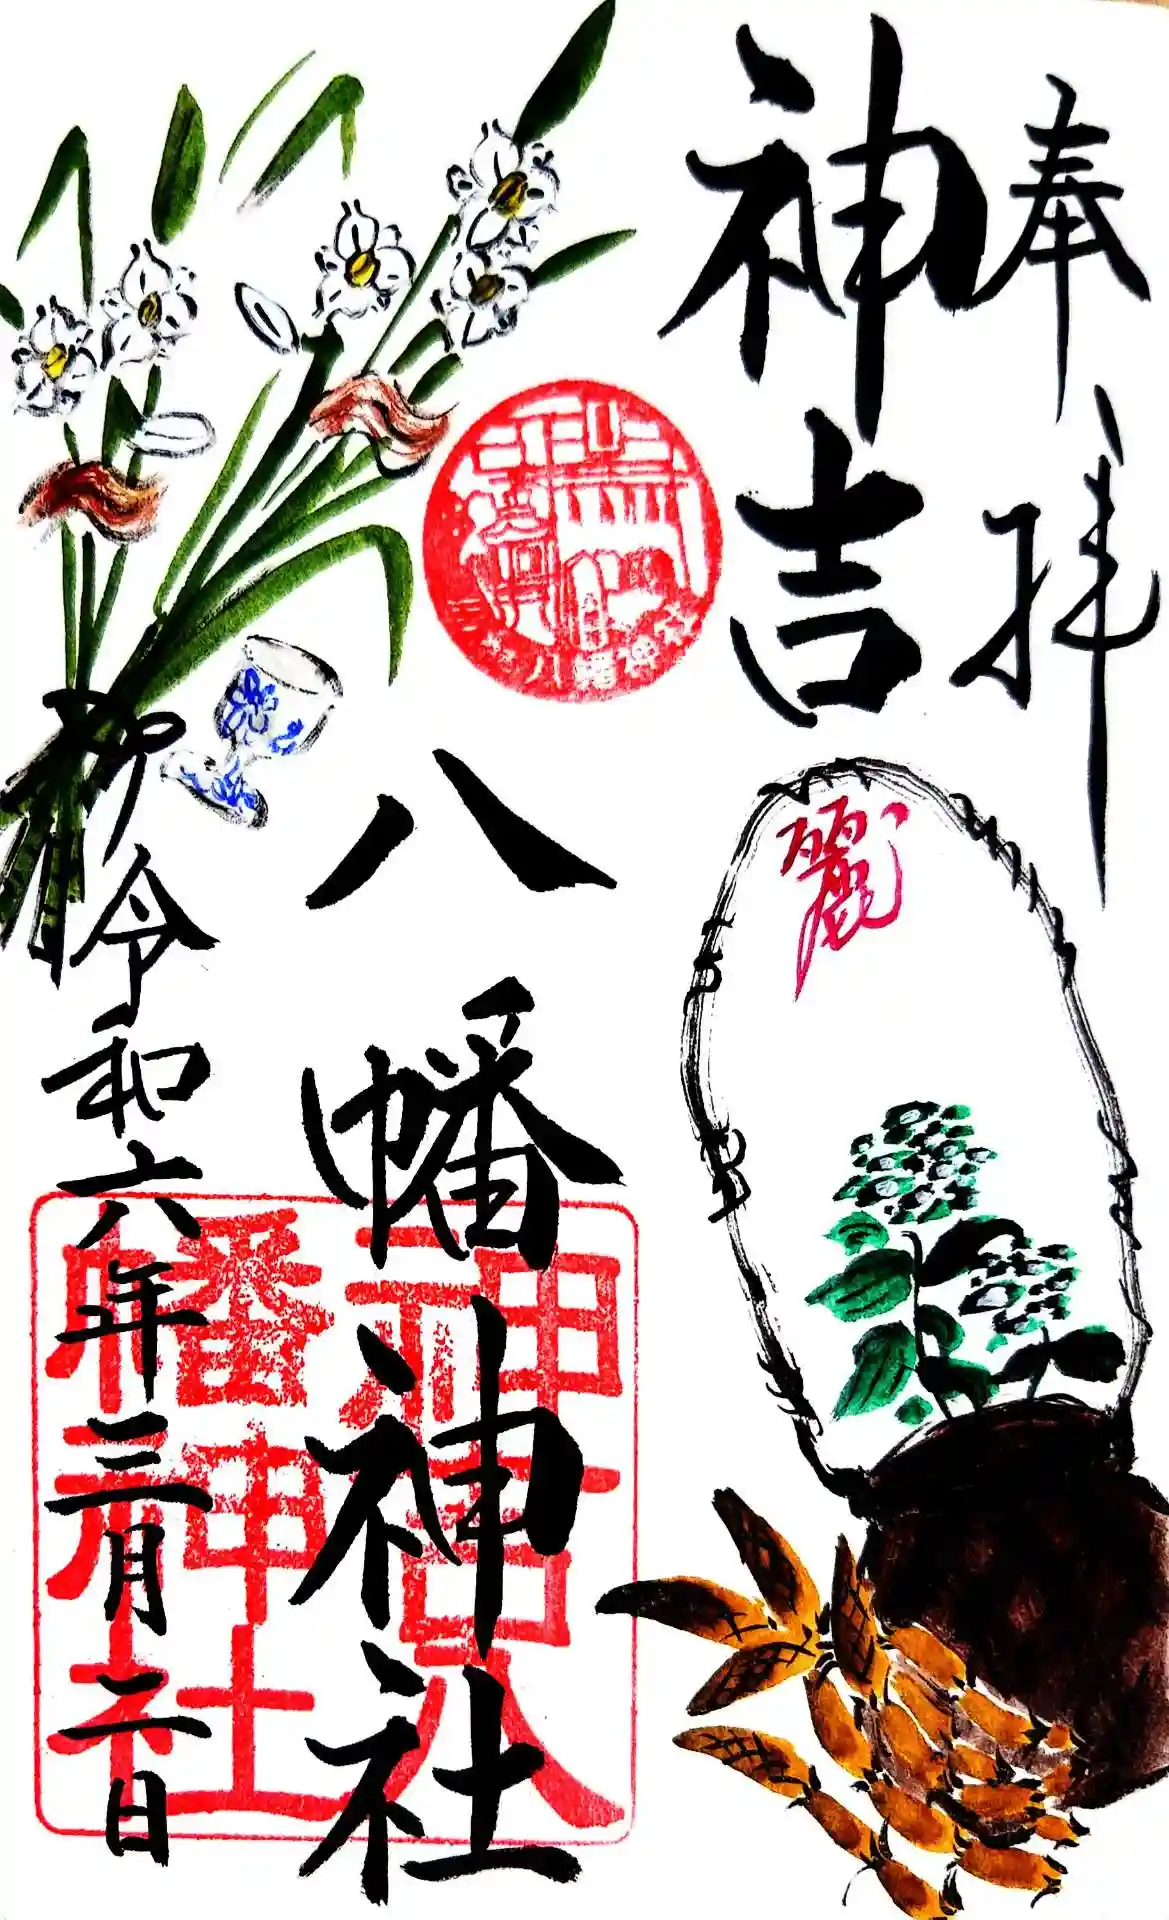 奉拝
神吉
八幡神社
麗
令和六年三月二日
神吉八
幡神社
八幡神社